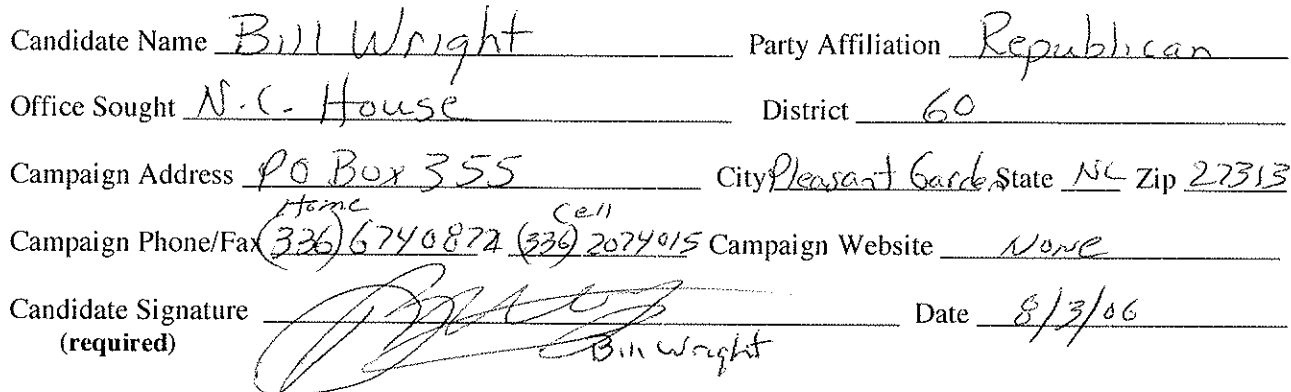 Candidate Name Bill Wright Party Affiliation Republican
Office Sought N.C. House District 60
Campaign Address PO Box 355 City Pleasant Garden State NC Zip 27313
Home Cell
Campaign Phone/Fax (336) 6740872 (336) 2074015 Campaign Website None
Candidate Signature Date 8/3/06
(required) Bill Wright